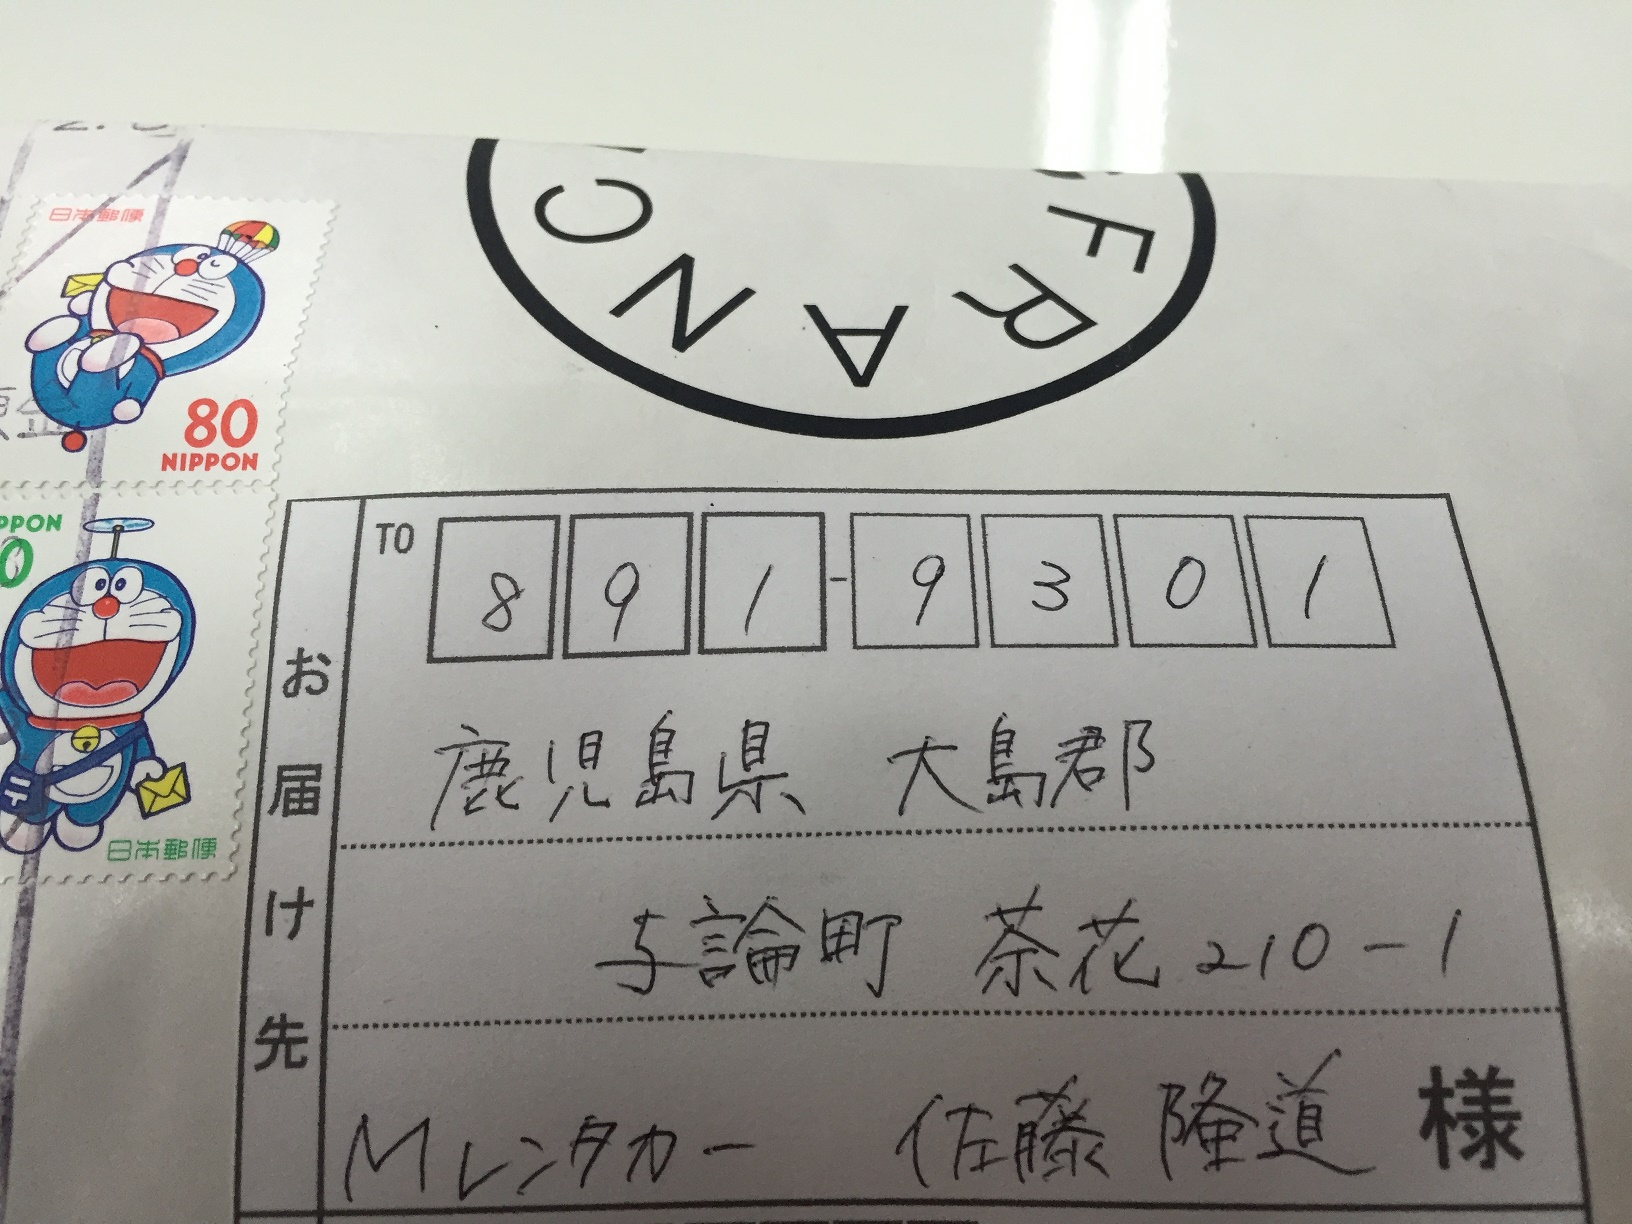 日本郵便
80
NIPPON
FRANC
TO
891-9301
お届け先
鹿児島県 大島郡
与論町 茶花210-1
Mレンタカー 佐藤 隆道 様
日本郵便